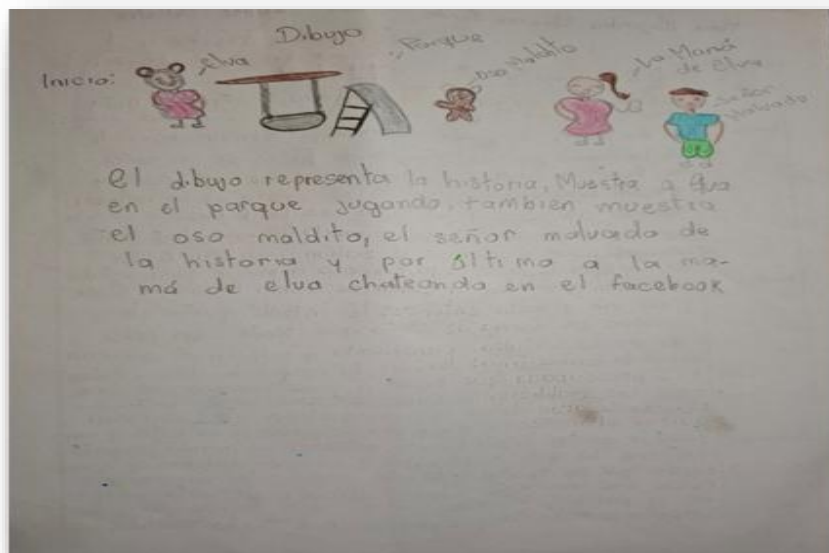 Dibujo
Inicio:
elva
Parque
oso Maldito
La Mamá
de Elva
Señor
Malvado
El dibujo representa la historia, Muestra a Elva
en el parque jugando, tambien muestra
el oso maldito, el señor malvado de
la historia y por último a la ma-
má de elva chateando en el facebook